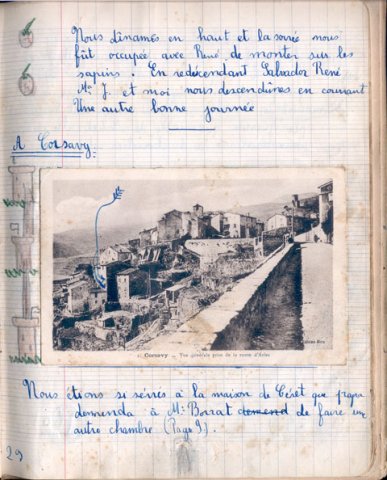 Nous dînames en haut et la soirée nous
fût occupée avec René de monter sur les
sapins. En redescendant Salvador René
Mr J. et moi nous descendîmes en courant
Une autre bonne journée
A Corsavy.
2. Corsavy - Vue générale prise de la route d'Arles
Nous étions si serrés à la maison de Céret que papa
demanda à Mr Borrat demend de faire une
autre chambre (Page 9).
29